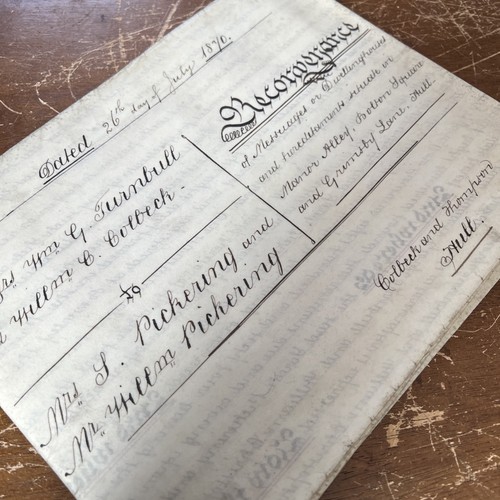 Dated 26th day of July 1870.
Mrs Wm. G. Turnbull
Willm C. Colbeck.
to
Mrs S. Pickering and
Mr Willm Pickering
Reconveyance
of Messuages or Dwellinghouses
and hereditaments situate in
Manor Alley, Bolton Square
and Grimsby Lane, Hull.
Colbeck and Thompson
Hull.